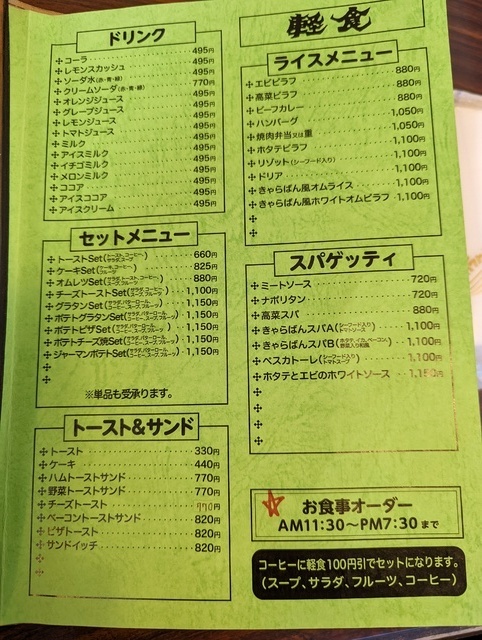 ドリンク
コーラ 495円
レモンスカッシュ 495円
ソーダ水(赤・青・緑) 495円
クリームソーダ(赤・青・緑) 770円
オレンジジュース 495円
グレープジュース 495円
レモンジュース 495円
トマトジュース 495円
ミルク 495円
アイスミルク 495円
イチゴミルク 495円
メロンミルク 495円
ココア 495円
アイスココア 495円
アイスクリーム 495円
セットメニュー
トーストSet(トースト、コーヒー サラダ、スープ) 660円
ケーキSet 825円
オムレツSet 880円
チーズトーストSet 1,100円
グラタンSet 1,150円
ポテトグラタンSet 1,150円
ポテトピザSet 1,150円
ポテトチーズ焼Set 1,150円
ジャーマンポテトSet 1,150円
※単品も受承ります。
トースト&サンド
トースト 330円
ケーキ 440円
ハムトーストサンド 770円
野菜トーストサンド 770円
チーズトースト 770円
ベーコントーストサンド 820円
ピザトースト 820円
サンドイッチ 820円
軽食
ライスメニュー
エビピラフ 880円
高菜ピラフ 880円
ビーフカレー 880円
ハンバーグ 1,050円
焼肉弁当又は重 1,050円
ホタテピラフ 1,100円
リゾット(シーフード入り) 1,100円
ドリア 1,100円
きゃらばん風オムライス 1,100円
きゃらばん風ホワイトオムピラフ 1,100円
スパゲッティ
ミートソース 720円
ナポリタン 720円
高菜スパ 880円
きゃらばんスパA(シーフード入り トマトソース) 1,100円
きゃらばんスパB(ホタテ、イカ、ベーコン 野菜入り和風) 1,100円
ペスカトーレ(シーフード入り トマトスープ) 1,100円
ホタテとエビのホワイトソース 1,150円
お食事オーダー
AM11:30〜PM7:30まで
コーヒーに軽食100円引でセットになります。
(スープ、サラダ、フルーツ、コーヒー)